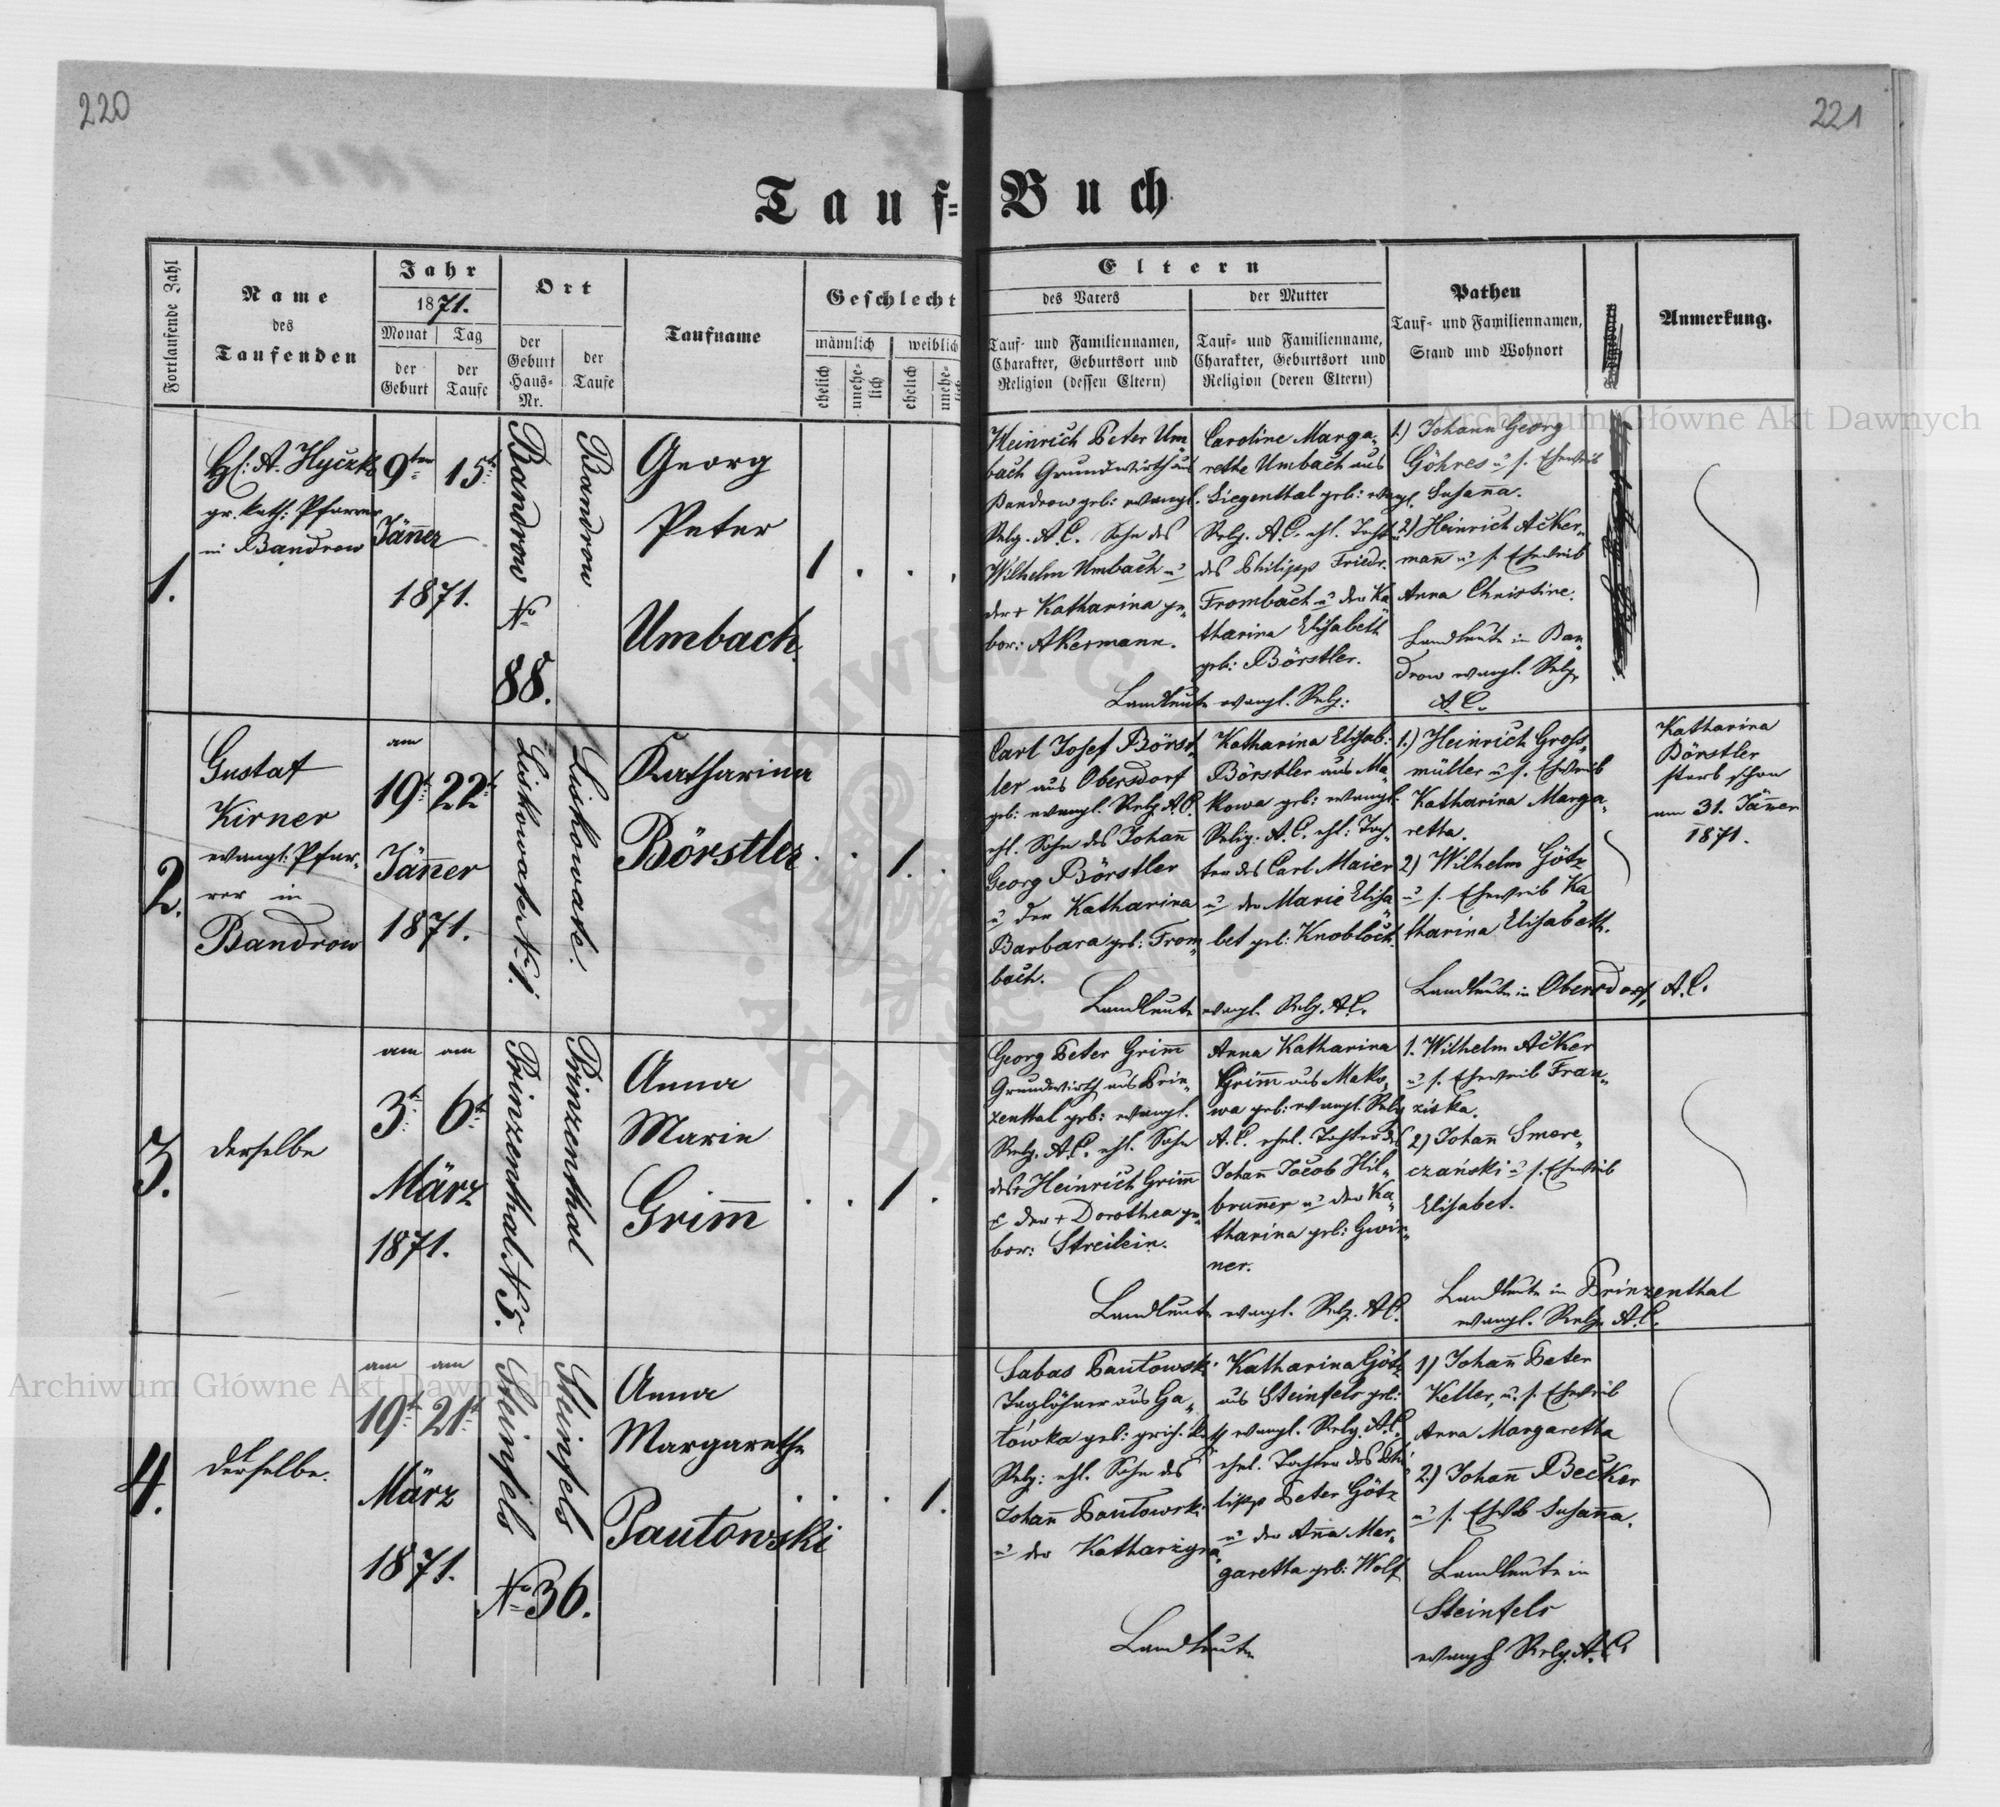 220
221
Tauf=Buch
Fortlaufende Zahl
Name
des
Taufenden
Jahr
1871.
Monat
Tag
der
Geburt
der
Taufe
Ort
der
Geburt
Haus=
Nr.
der
Taufe
Taufname
Geschlecht
männlich
weiblich
ehelich
unehe=
lich
ehelich
unehe=
lich
Eltern
des Vaters
der Mutter
Tauf= und Familiennamen,
Charakter, Geburtsort und
Religion (dessen Eltern)
Tauf= und Familienname,
Charakter, Geburtsort und
Religion (deren Eltern)
Pathen
Tauf= und Familiennamen,
Stand und Wohnort
Anmerkung.
1.
H: A. Hyczko
gr. kath: Pfarrer
in Bandrow
9ten
15t
Jäner
1871.
Bandrow No
88.
Bandrow
Georg
Peter
Umbach.
1
Heinrich Peter Um„
bach Grundwirth aus
Bandrow geb: evangl.
Relg. A.C. Sohn des
Wilhelm Umbach u
der + Katharina ge„
bor: Akermann.
Caroline Marga„
rethe Umbach aus
Siegenthal geb: evagl.
Relg. A.C. ehl. Tocht
des Philipp Friedr.
Frombach u der Ka„
tharina Elisabeth
geb: Börstler.
Landleute evangl. Relg:
1.) Johann Georg
Göhres u s. Eheweib
Susana.
2) Heinrich Acker„
man u s. Eheweib
Anna Christine.
Landleute in Ban„
drow evangl. Relg.
A.C.
2.
Gustaf
Kirner
evangl: Pfar„
rer in
Bandrow
am
19t
22t
Jäner
1871.
Liskowate N 1.
Liskowate.
Katharina
Börstler
1.
Carl Josef Börst„
ler aus Obersdorf
geb: evangl. Relg A.C.
ehl. Sohn des Johan
Georg Börstler
u der Katharina
Barbara geb: From„
bach.
Katharina Elisab:
Börstler aus Ma„
kowa geb: evangl.
Relig: A.C. ehl: Toch„
ter des Carl Maier
u der Marie Elisa„
bet geb: Knobloch.
Landleute evagl. Relg. A.C.
1.) Heinrich Gross„
müller u s. Eheweib
Katharina Marga„
retha.
2) Wilhelm Götz
u s. Eheweib Ka„
tharina Elisabeth.
Landleute in Obersdorf, A.C.
Katharina
Börstler
starb schon
am 31. Jäner
1871.
3.
derselbe
am
am
3t
6t
März
1871.
Prinzenthal. N 5.
Prinzenthal
Anna
Marie
Grimm
1
Georg Peter Grimm
Grundwirth aus Prin„
zenthal geb: evangl.
Relg. A.C. ehl. Sohn
des + Heinrich Grimm
& der + Dorothea ge„
bor: Streilein.
Anna Katharina
Grimm aus Mako„
wa geb: evangl. Relg
A.C. ehel. Tochter des
Johan Jacob Hil„
bruner u der Ka„
tharina geb: Gwin„
ner.
Landleute evangl. Relg. A.C.
1. Wilhelm Acker
u s. Eheweib Fran„
ziska.
2) Johan Smere„
czański u s. Eheweib
Elisabet.
Landleute in Prinzenthal
evangl. Relg. A.C.
4.
derselbe.
am
am
19t
21t
März
1871.
Steinfels
No 36.
Steinfels
Anna
Margarethe
Pautowski
1.
Sabas Pautowski
Taglöhner aus Ga„
łówka geb: grich. kath
Relg: ehl. Sohn des
Johan Pautowski
u der Katharzyna
Katharina Götz
aus Steinfels geb:
evangl. Relg. A.C.
ehel. Tochter des Phi„
lipp Peter Götz
u der Anna Mar„
garetta geb: Wolf
Landleute
1) Johan Peter
Keller, u. s. Eheweib
Anna Margaretta
2.) Johan Becker
u s. Ehwb Susana.
Landleute in
Steinfels
evangl Relg. A.C.
Archiwum Główne Akt Dawnych
Archiwum Główne Akt Dawnych